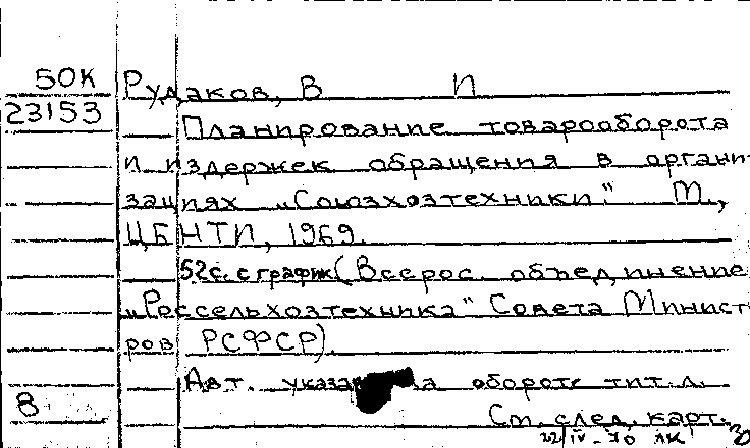 50К
23153
Рудаков, В П
Планирование товарооборота
и издержек обращения в органи-
зациях „Союзхозтехники." М.,
ЦБНТИ, 1969.
52с. с график (Всерос. объединение
„Россельхозтехника" Совета Минист-
ров РСФСР).
Авт. указан на обороте тит. л.
8
См. след. карт.
22/IV-70 ЛК